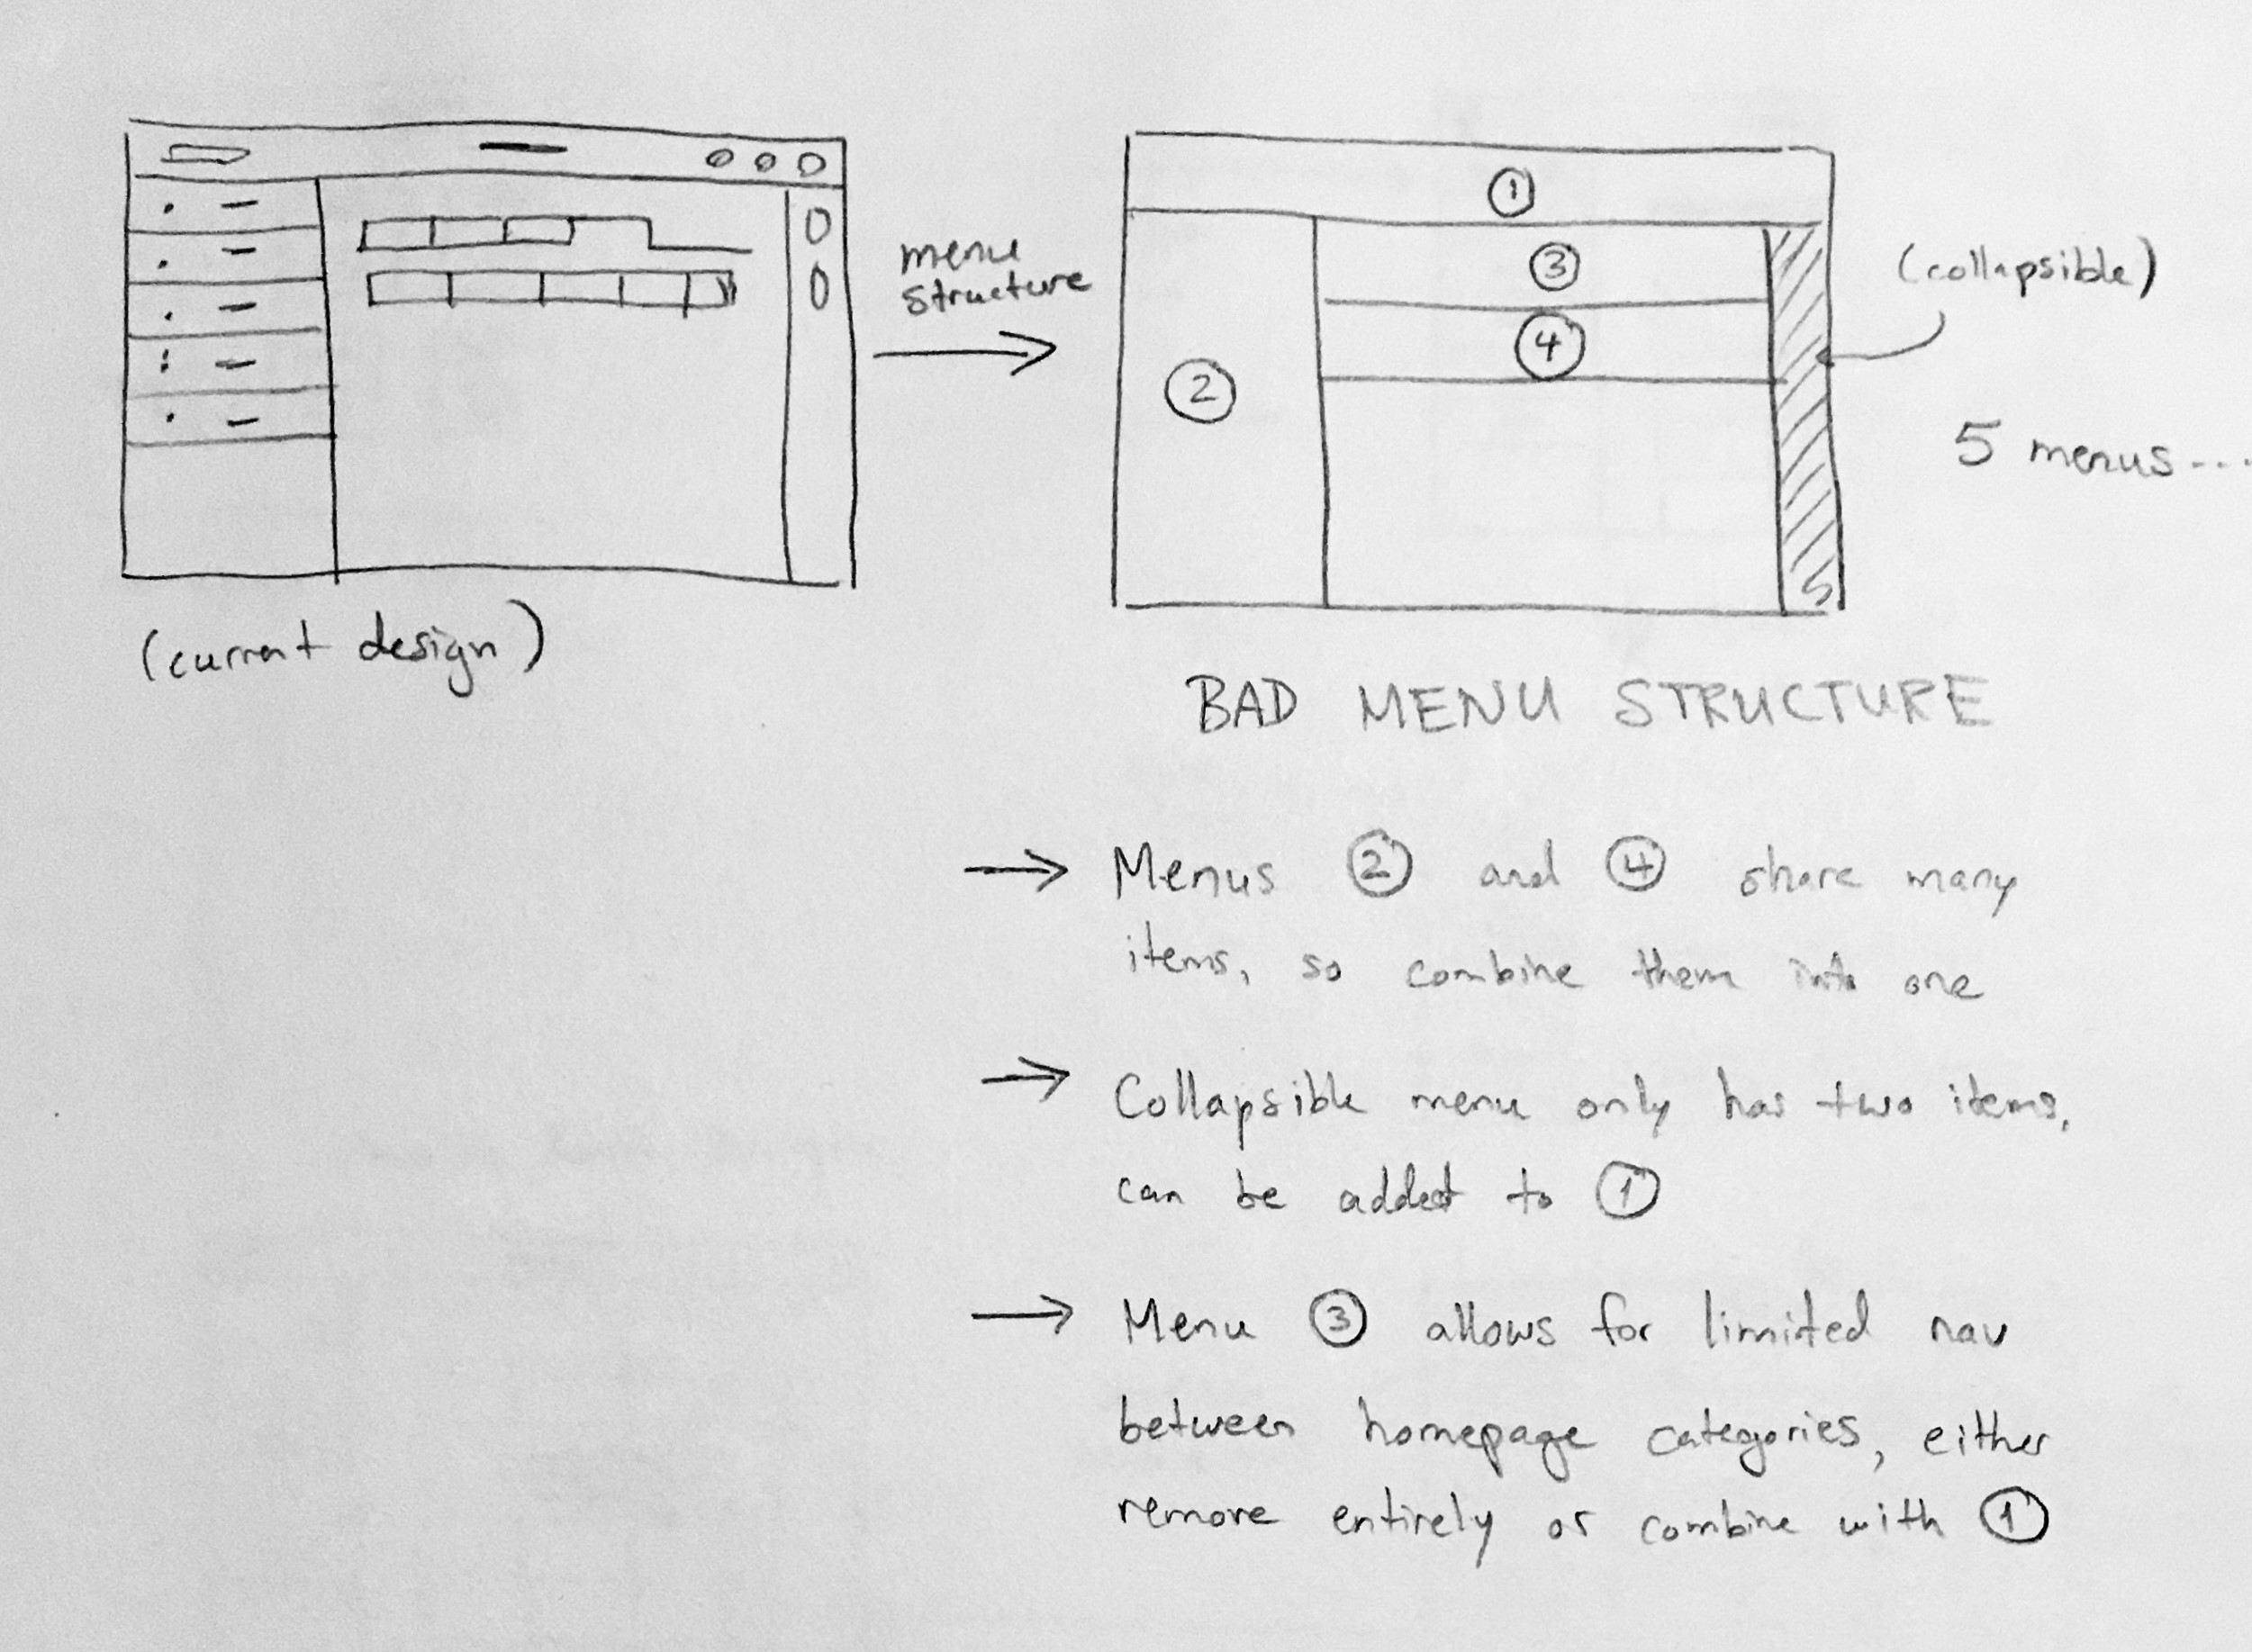 menu
structure
①
③
④
②
(collapsible)
5 menus...
(current design)
BAD MENU STRUCTURE
→ Menus ② and ④ share many
items, so combine them into one
→ Collapsible menu only has two items,
can be added to ①
→ Menu ③ allows for limited nav
between homepage categories, either
remove entirely or combine with ①